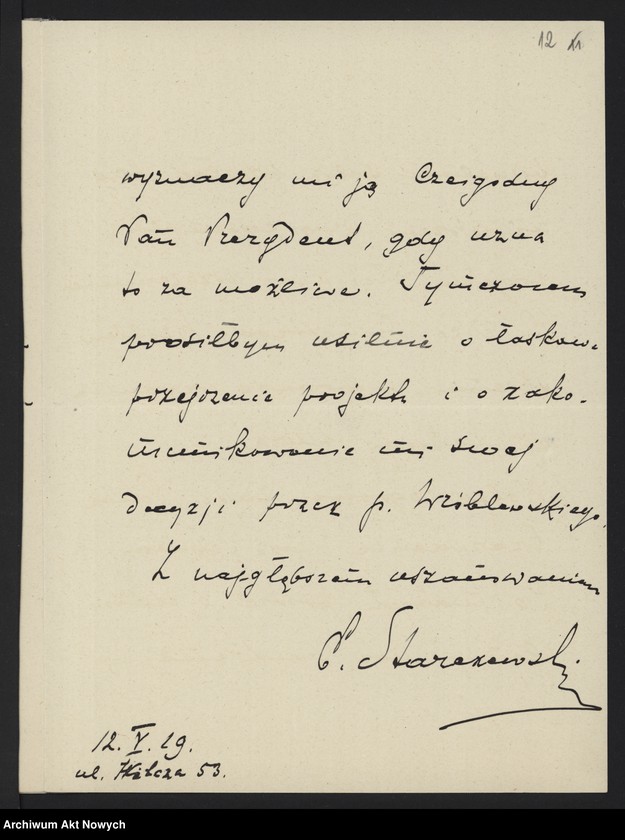 12
wyznaczy mi ją Czcigodny
Pan Prezydent, gdy uzna
to za możliwe. Tymczasem
prosiłbym usilnie o łaskawe
przejrzenie projektu i o zako-
munikowanie mi swej
decyzji przez p. Wróblewskiego.
Z najgłębszem uszanowaniem
E. Starczewski
12. V. 19.
ul. Wilcza 53.
Archiwum Akt Nowych